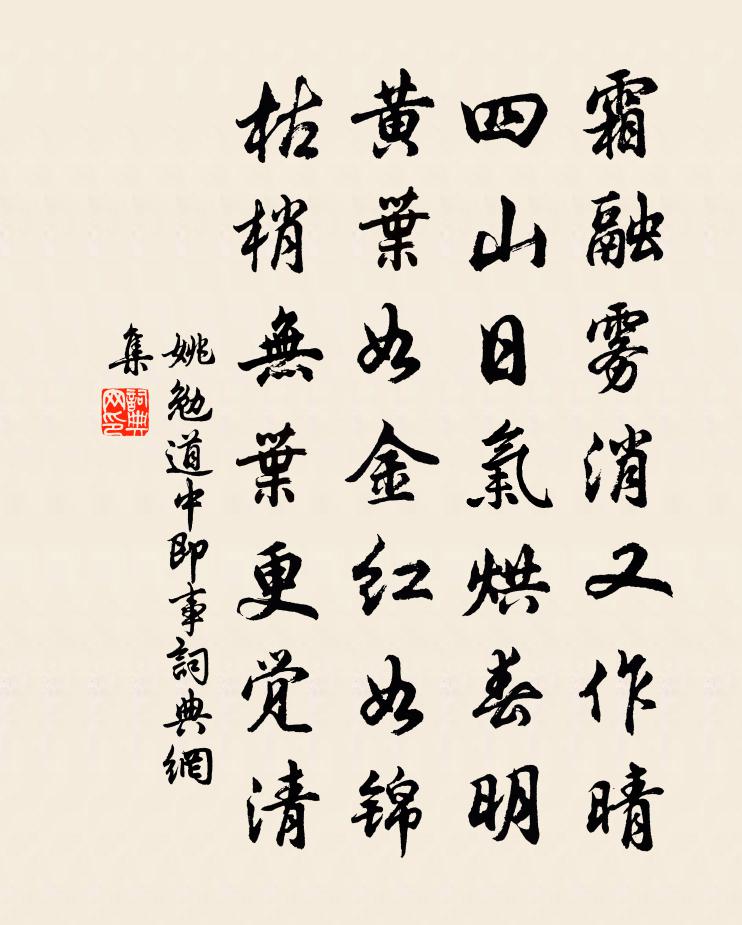 霜融雾消又作晴
四山日氣烘春明
黄葉如金红如锦
枯梢無葉更觉清
姚勉道中即事詞典網
集
詞典
网印